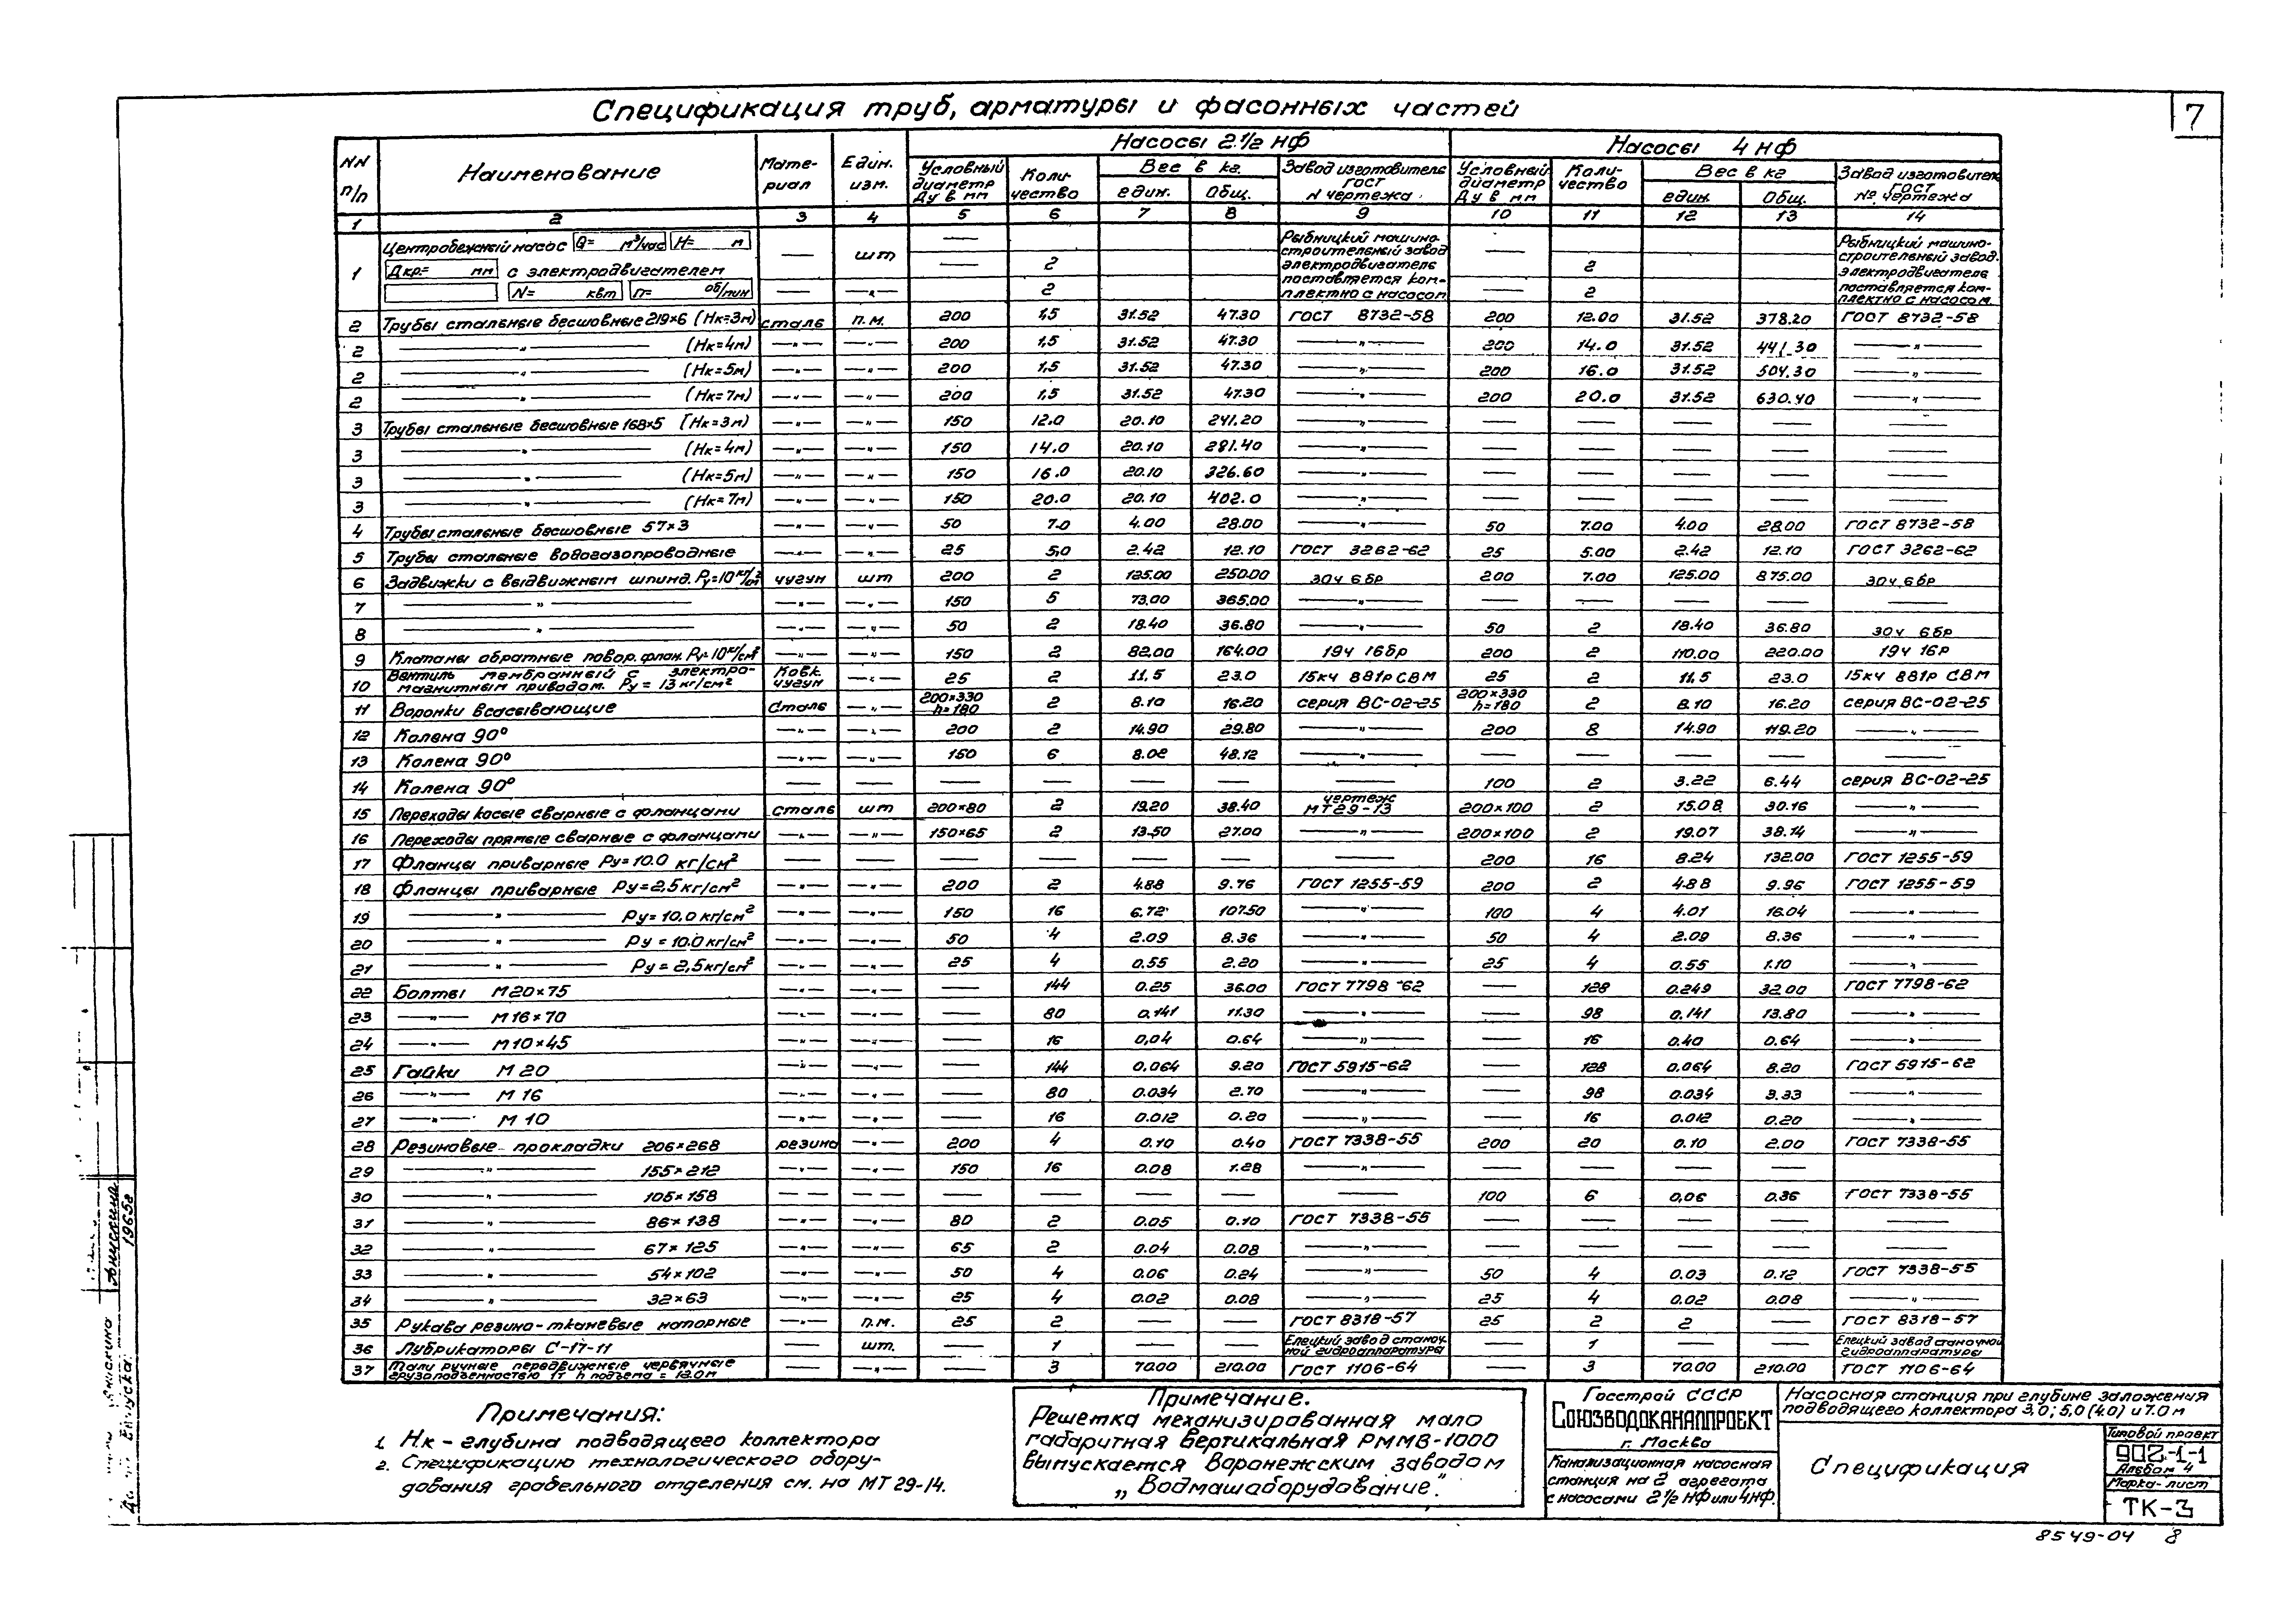 7
Спецификация труб, арматуры и фасонных частей
NN п/п | Наименование | Мате-риал | Един. изм. | Насосы 2 1/2 НФ | Насосы 4 НФ
Условный диаметр Ду в мм | Коли-чество | Вес в кг. | Завод изготовитель ГОСТ N чертежа | Условный диаметр Ду в мм | Коли-чество | Вес в кг | Завод изготовитель ГОСТ № чертежа
един. | Общ. | един. | Общ.
1 | 2 | 3 | 4 | 5 | 6 | 7 | 8 | 9 | 10 | 11 | 12 | 13 | 14
1 | Центробежный насос Q= м³/час H= м | — | шт | — | Рыбницкий машино- | — | Рыбницкий машино-
строительный завод | строительный завод.
Дкр.= мм с электродвигателем | — | 2 | электродвигатель | 2 | электродвигатель
N= квт n= об/мин | — | -"- | 2 | поставляется ком- | — | 2 | поставляется ком-
плектно с насосом | плектно с насосом.
2 | Трубы стальные бесшовные 219×6 (Нк=3м) | сталь | п.м. | 200 | 1,5 | 31.52 | 47.30 | ГОСТ 8732-58 | 200 | 12.00 | 31.52 | 378.20 | ГОСТ 8732-58
2 | —"— (Нк=4м) | —"— | —"— | 200 | 1,5 | 31.52 | 47.30 | —"— | 200 | 14.0 | 31.52 | 441.30 | —"—
2 | —"— (Нк=5м) | —"— | —"— | 200 | 1,5 | 31.52 | 47.30 | —"— | 200 | 16.0 | 31.52 | 504.30 | —"—
2 | —"— (Нк=7м) | —"— | —"— | 200 | 1,5 | 31.52 | 47.30 | —"— | 200 | 20.0 | 31.52 | 630.40 | —"—
3 | Трубы стальные бесшовные 168×5 (Нк=3м) | —"— | —"— | 150 | 12.0 | 20.10 | 241.20 | —"— | — | — | — | — | —
3 | —"— (Нк=4м) | —"— | —"— | 150 | 14.0 | 20.10 | 281.40 | —"— | — | — | — | — | —
3 | —"— (Нк=5м) | —"— | —"— | 150 | 16.0 | 20.10 | 326.60 | —"— | — | — | — | — | —
3 | —"— (Нк=7м) | —"— | —"— | 150 | 20.0 | 20.10 | 402.0 | —"— | — | — | — | — | —
4 | Трубы стальные бесшовные 57×3 | —"— | —"— | 50 | 7.0 | 4.00 | 28.00 | —"— | 50 | 7.00 | 4.00 | 28.00 | ГОСТ 8732-58
5 | Трубы стальные водогазопроводные | —"— | —"— | 25 | 5,0 | 2.42 | 12.10 | ГОСТ 3262-62 | 25 | 5.00 | 2.42 | 12.10 | ГОСТ 3262-62
6 | Задвижки с выдвижным шпинд. Ру=10 кг/см² | чугун | шт | 200 | 2 | 125.00 | 250.00 | 30ч 6бр | 200 | 7.00 | 125.00 | 875.00 | 30ч 6бр
7 | —"— | —"— | —"— | 150 | 5 | 73.00 | 365.00 | —"— | — | — | — | — | —
8 | —"— | —"— | —"— | 50 | 2 | 18.40 | 36.80 | —"— | 50 | 2 | 18.40 | 36.80 | 30ч 6бр
9 | Клапаны обратные повор. флан. Ру=10 кг/см² | —"— | —"— | 150 | 2 | 82.00 | 164.00 | 19ч 16бр | 200 | 2 | 110.00 | 220.00 | 19ч 16р
10 | Вентиль мембранный с электро-магнитным приводом. Ру = 13 кг/см² | Ковк. чугун | —"— | 25 | 2 | 11,5 | 23.0 | 15кч 881р СВМ | 25 | 2 | 11,5 | 23.0 | 15кч 881р СВМ
11 | Воронки всасывающие | Сталь | —"— | 200×330 h=180 | 2 | 8.10 | 16.20 | серия ВС-02-25 | 200×330 h=180 | 2 | 8.10 | 16.20 | серия ВС-02-25
12 | Колена 90° | —"— | —"— | 200 | 2 | 14.90 | 29.80 | —"— | 200 | 8 | 14.90 | 119.20 | —"—
13 | Колена 90° | —"— | —"— | 150 | 6 | 8.02 | 48.12 | —"— | — | — | — | — | —
14 | Колена 90° | — | — | — | — | — | — | — | 100 | 2 | 3.22 | 6.44 | серия ВС-02-25
15 | Переходы косые сварные с фланцами | сталь | шт | 200×80 | 2 | 19.20 | 38.40 | чертеж МТ29-13 | 200×100 | 2 | 15.08 | 30.16 | —"—
16 | Переходы прямые сварные с фланцами | —"— | —"— | 150×65 | 2 | 13.50 | 27.00 | —"— | 200×100 | 2 | 19.07 | 38.14 | —"—
17 | Фланцы приварные Ру=10.0 кг/см² | — | — | — | — | — | — | — | 200 | 16 | 8.24 | 132.00 | ГОСТ 1255-59
18 | Фланцы приварные Ру=2,5 кг/см² | —"— | —"— | 200 | 2 | 4.88 | 9.76 | ГОСТ 1255-59 | 200 | 2 | 4.88 | 9.96 | ГОСТ 1255-59
19 | —"— Ру=10.0 кг/см² | —"— | —"— | 150 | 16 | 6.72 | 107.50 | —"— | 100 | 4 | 4.01 | 16.04 | —"—
20 | —"— Ру=10.0 кг/см² | —"— | —"— | 50 | 4 | 2.09 | 8.36 | —"— | 50 | 4 | 2.09 | 8.36 | —"—
21 | —"— Ру=2,5 кг/см² | —"— | —"— | 25 | 4 | 0.55 | 2.20 | —"— | 25 | 4 | 0.55 | 1.10 | —"—
22 | Болты М20×75 | —"— | —"— | — | 144 | 0.25 | 36.00 | ГОСТ 7798-62 | — | 128 | 0.249 | 32.00 | ГОСТ 7798-62
23 | —"— М16×70 | —"— | —"— | — | 80 | 0.141 | 11.30 | —"— | — | 98 | 0.141 | 13.80 | —"—
24 | —"— М10×45 | —"— | —"— | — | 16 | 0,04 | 0.64 | —"— | — | 16 | 0.40 | 0.64 | —"—
25 | Гайки М20 | —"— | —"— | — | 144 | 0.064 | 9.20 | ГОСТ 5915-62 | — | 128 | 0.064 | 8.20 | ГОСТ 5915-62
26 | —"— М16 | —"— | —"— | — | 80 | 0.034 | 2.70 | —"— | — | 98 | 0.034 | 3.33 | —"—
27 | —"— М10 | —"— | —"— | — | 16 | 0.012 | 0.20 | —"— | — | 16 | 0.012 | 0.20 | —"—
28 | Резиновые прокладки 206×268 | резина | —"— | 200 | 4 | 0.10 | 0.40 | ГОСТ 7338-55 | 200 | 20 | 0.10 | 2.00 | ГОСТ 7338-55
29 | —"— 155×212 | —"— | —"— | 150 | 16 | 0.08 | 1.28 | —"— | — | — | — | — | —
30 | —"— 106×158 | — | — | — | — | — | — | — | 100 | 6 | 0,06 | 0.36 | ГОСТ 7338-55
31 | —"— 86×138 | —"— | —"— | 80 | 2 | 0.05 | 0.10 | ГОСТ 7338-55 | — | — | — | — | —
32 | —"— 67×125 | —"— | —"— | 65 | 2 | 0.04 | 0.08 | —"— | — | — | — | — | —
33 | —"— 54×102 | —"— | —"— | 50 | 4 | 0.06 | 0.24 | —"— | 50 | 4 | 0.03 | 0.12 | ГОСТ 7338-55
34 | —"— 32×63 | —"— | —"— | 25 | 4 | 0.02 | 0.08 | —"— | 25 | 4 | 0.02 | 0.08 | —"—
35 | Рукава резино-тканевые напорные | —"— | п.м. | 25 | 2 | — | — | ГОСТ 8318-57 | 25 | 2 | 2 | — | ГОСТ 8318-57
36 | Лубрикаторы С-17-11 | — | шт. | — | 1 | — | — | Елецкий завод станоч-ной гидроаппаратуры | — | 1 | — | — | Елецкий завод станочной гидроаппаратуры
37 | Тали ручные передвижные червячные грузоподъемностью 1т h подъема = 12.0м | — | —"— | — | 3 | 70.00 | 210.00 | ГОСТ 1106-64 | — | 3 | 70.00 | 210.00 | ГОСТ 1106-64
Примечания:
1. Нк – глубина подводящего коллектора
2. Спецификацию технологического обору-
дования грабельного отделения см. на МТ 29-14.
Примечание.
Решетка механизированная мало
габаритная вертикальная РММВ-1000
выпускается Воронежским заводом
„Водмашоборудование".
Госстрой СССР
СОЮЗВОДОКАНАЛПРОЕКТ
г. Москва
Канализационная насосная
станция на 2 агрегата
с насосами 2 1/2 НФ или 4НФ.
Насосная станция при глубине заложения
подводящего коллектора 3,0; 5,0 (4.0) и 7.0 м
Спецификация
Типовой проект
902-1-1
Альбом 4
Марка-лист
ТК-3
8549-04 8
Анискина
1965г